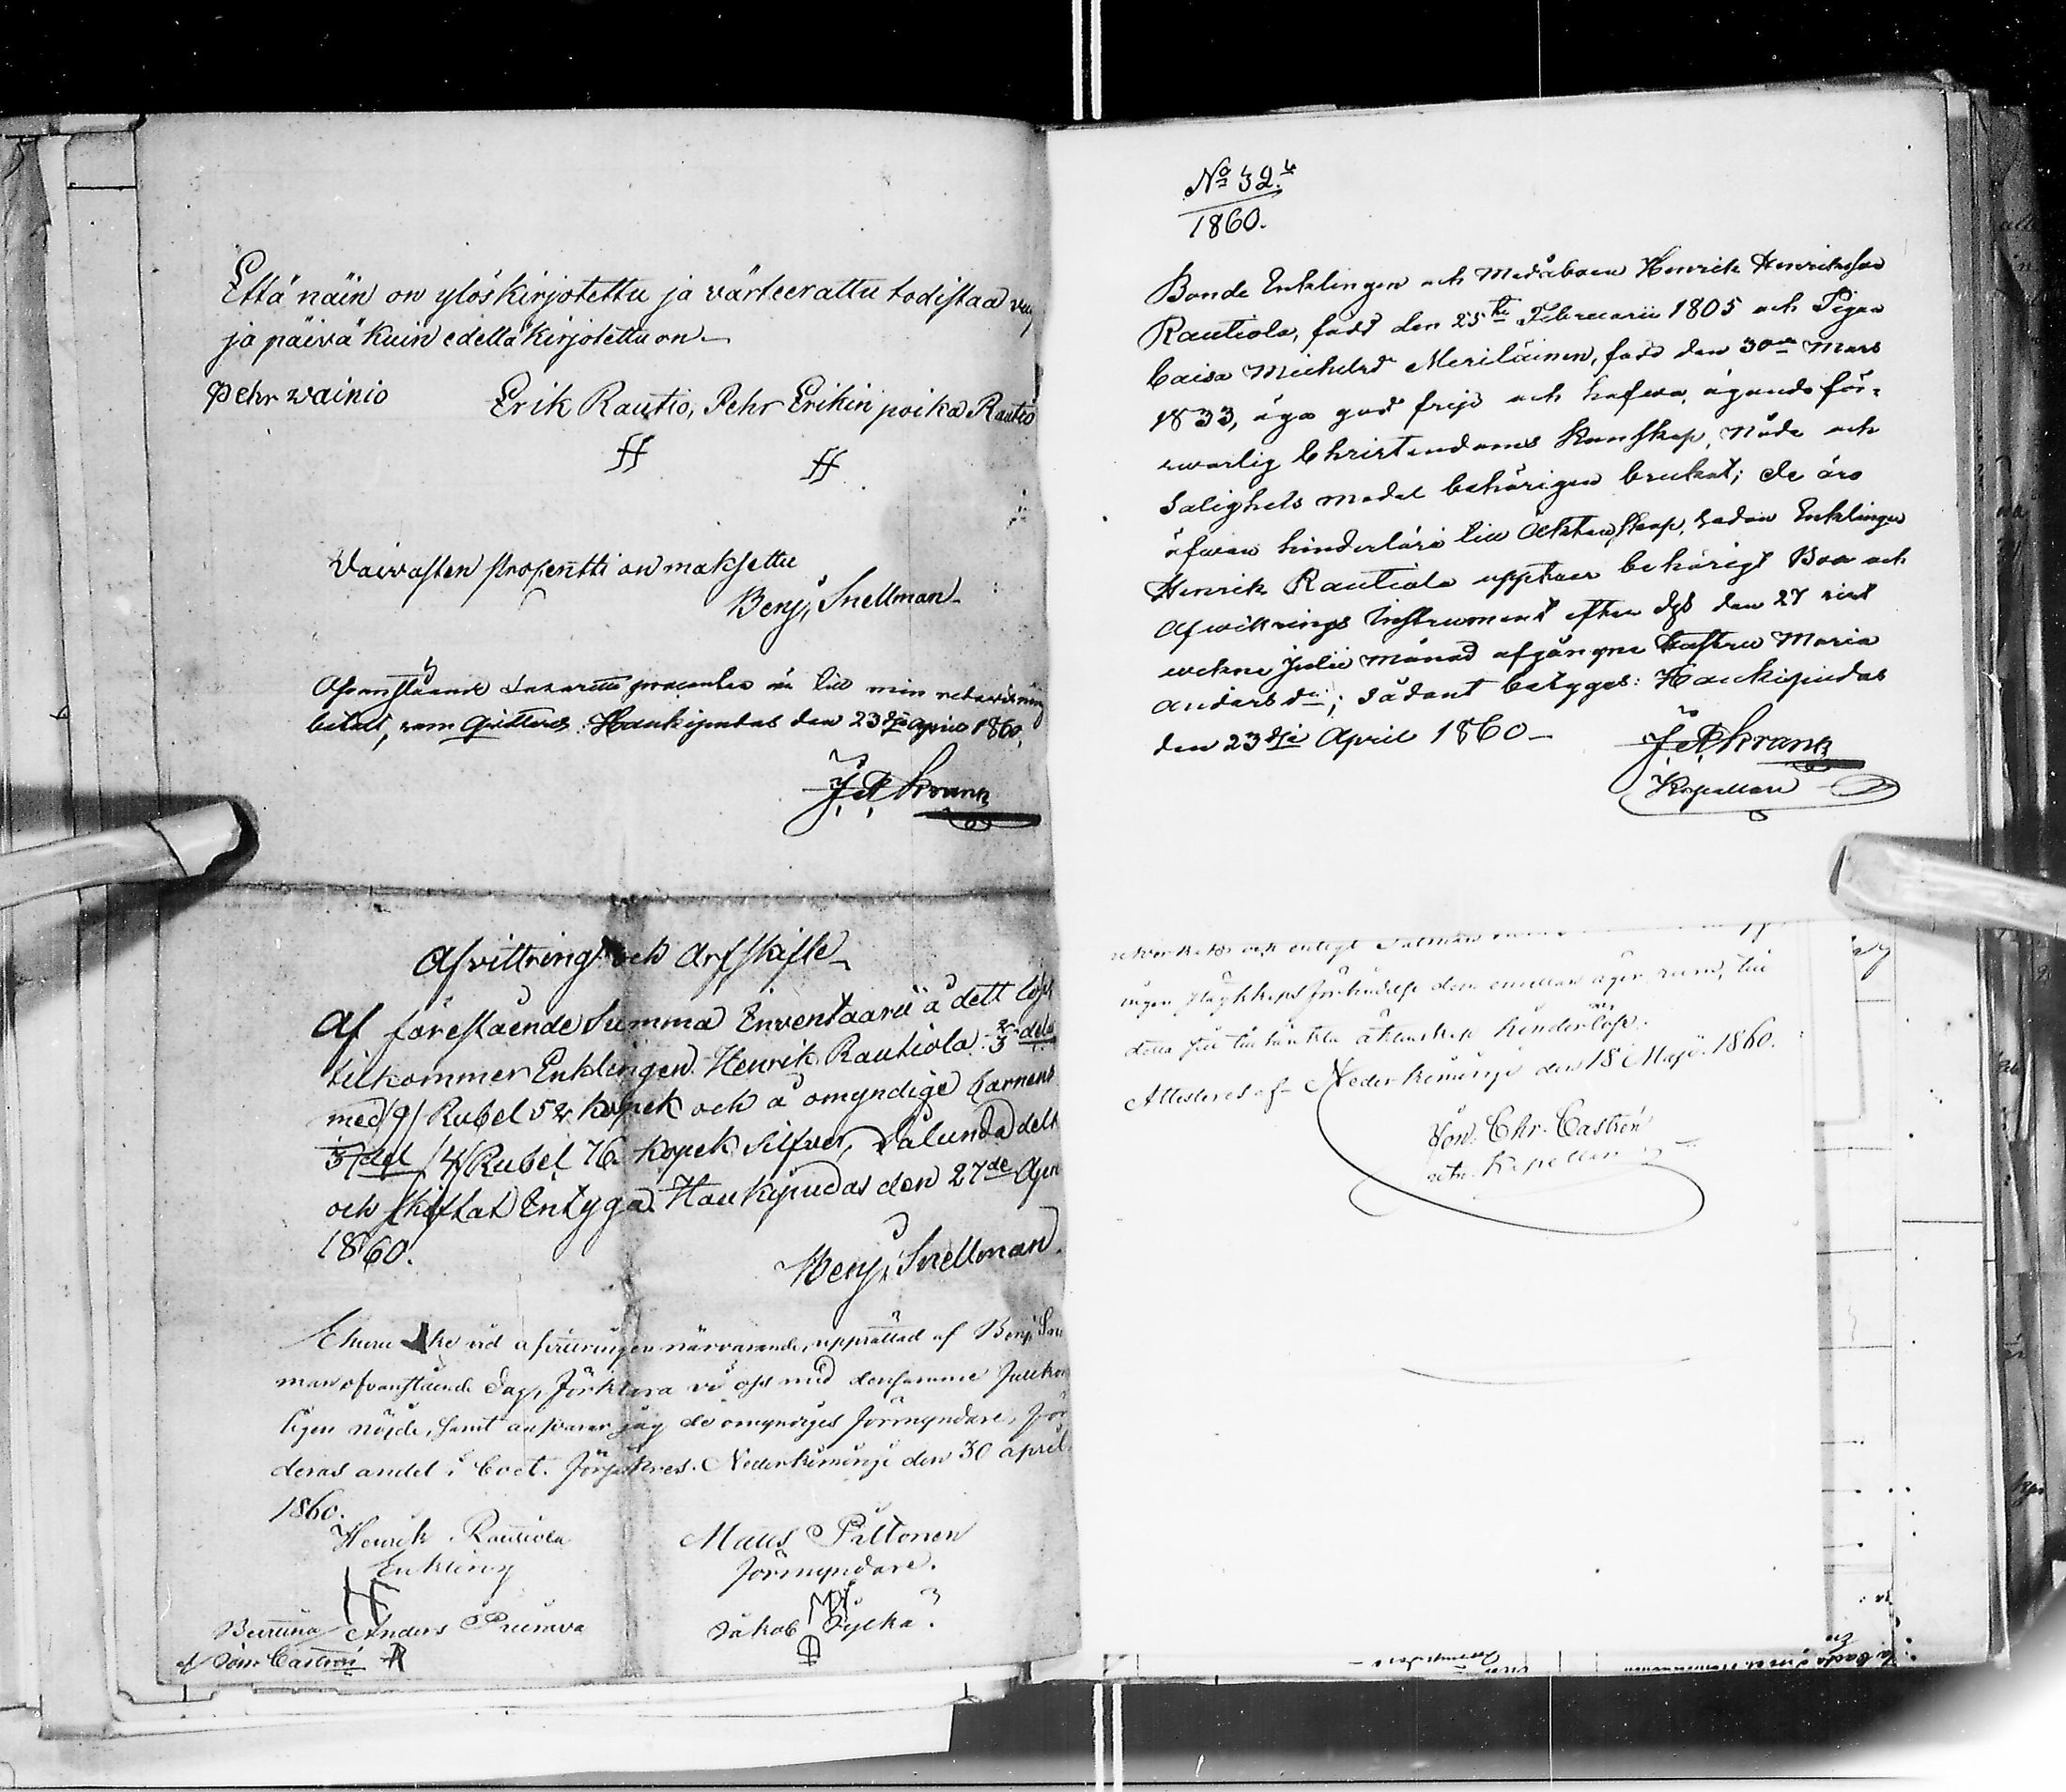 Että näin on ylöskirjotettu ja värteerattu todistaa
ja päivä kuin edellä kirjotettu on
Pehr Wainio Erik Rautio, Pehr Erikin poika Rautio
Vaivasten prosentti on maksettu
Benj. Snellman
Ofvanstående Lazaretts procenter är till min
betalt, som qvitteras. Haukipudas den 23die April 1860.
J A Krank
Afvittring och Arfskifte
Af förestående Summa Inventarii ä dett
tilkommer Enklingen Henrik Rautiola 2/3 dels
med 9 Rubel 52 kopek och ä omyndige barnens
1/3 del 4 Rubel 76 kopek Silfver, Sålunda delt
och skiftat Intyga. Haukipudas den 27de
1860.
Benj. Snellman
Ehuru icke vid afvittringen närvarande, upprättad af Benj.
man ofvanstående dag, förklara vi oss med densamma
ligen nöjde, samt ansvarar jag de omyndiges förmyndare, för
deras andel i boet. Försäkras. Nederkiminge den 30 april
1860.
Henrik Rautiola Matts Piltonen
Enkling förmyndare.
Anders Jakob
af Castrén
No 32.
1860.
Bonde Enklingen och Medåboen Henrik Henriksson
Rautiola, född den 25te Februarii 1805 och Pigan
Caisa Michelsdr Meriläinen, född den 30 Mars
1833, äga god frejd och hafva, ägande för-
svarlig Christendoms Kunskap, Nåde och
Salighets medel behörigen brukat; de äro
äfven hinderlösa till Äktenskap, sedan Enklingen
Henrik Rautiola upptaer behörigt Boo och
Afwittrings Instrument efter dess den 27 sist
wekne Julii månad afgångne hustru Maria
Andersdr; sådant betygas: Haukipudas
den 23die April 1860
J A Krank
Kapellan
ingen skyldskaps förbindelse dem emellan äger rum, till
detta sitt tilltänkta äktenskap hinderlöse.
Attesteras af Nederkiminge den 18 Maji 1860.
Jon. Chr. Castrén
Kapellan